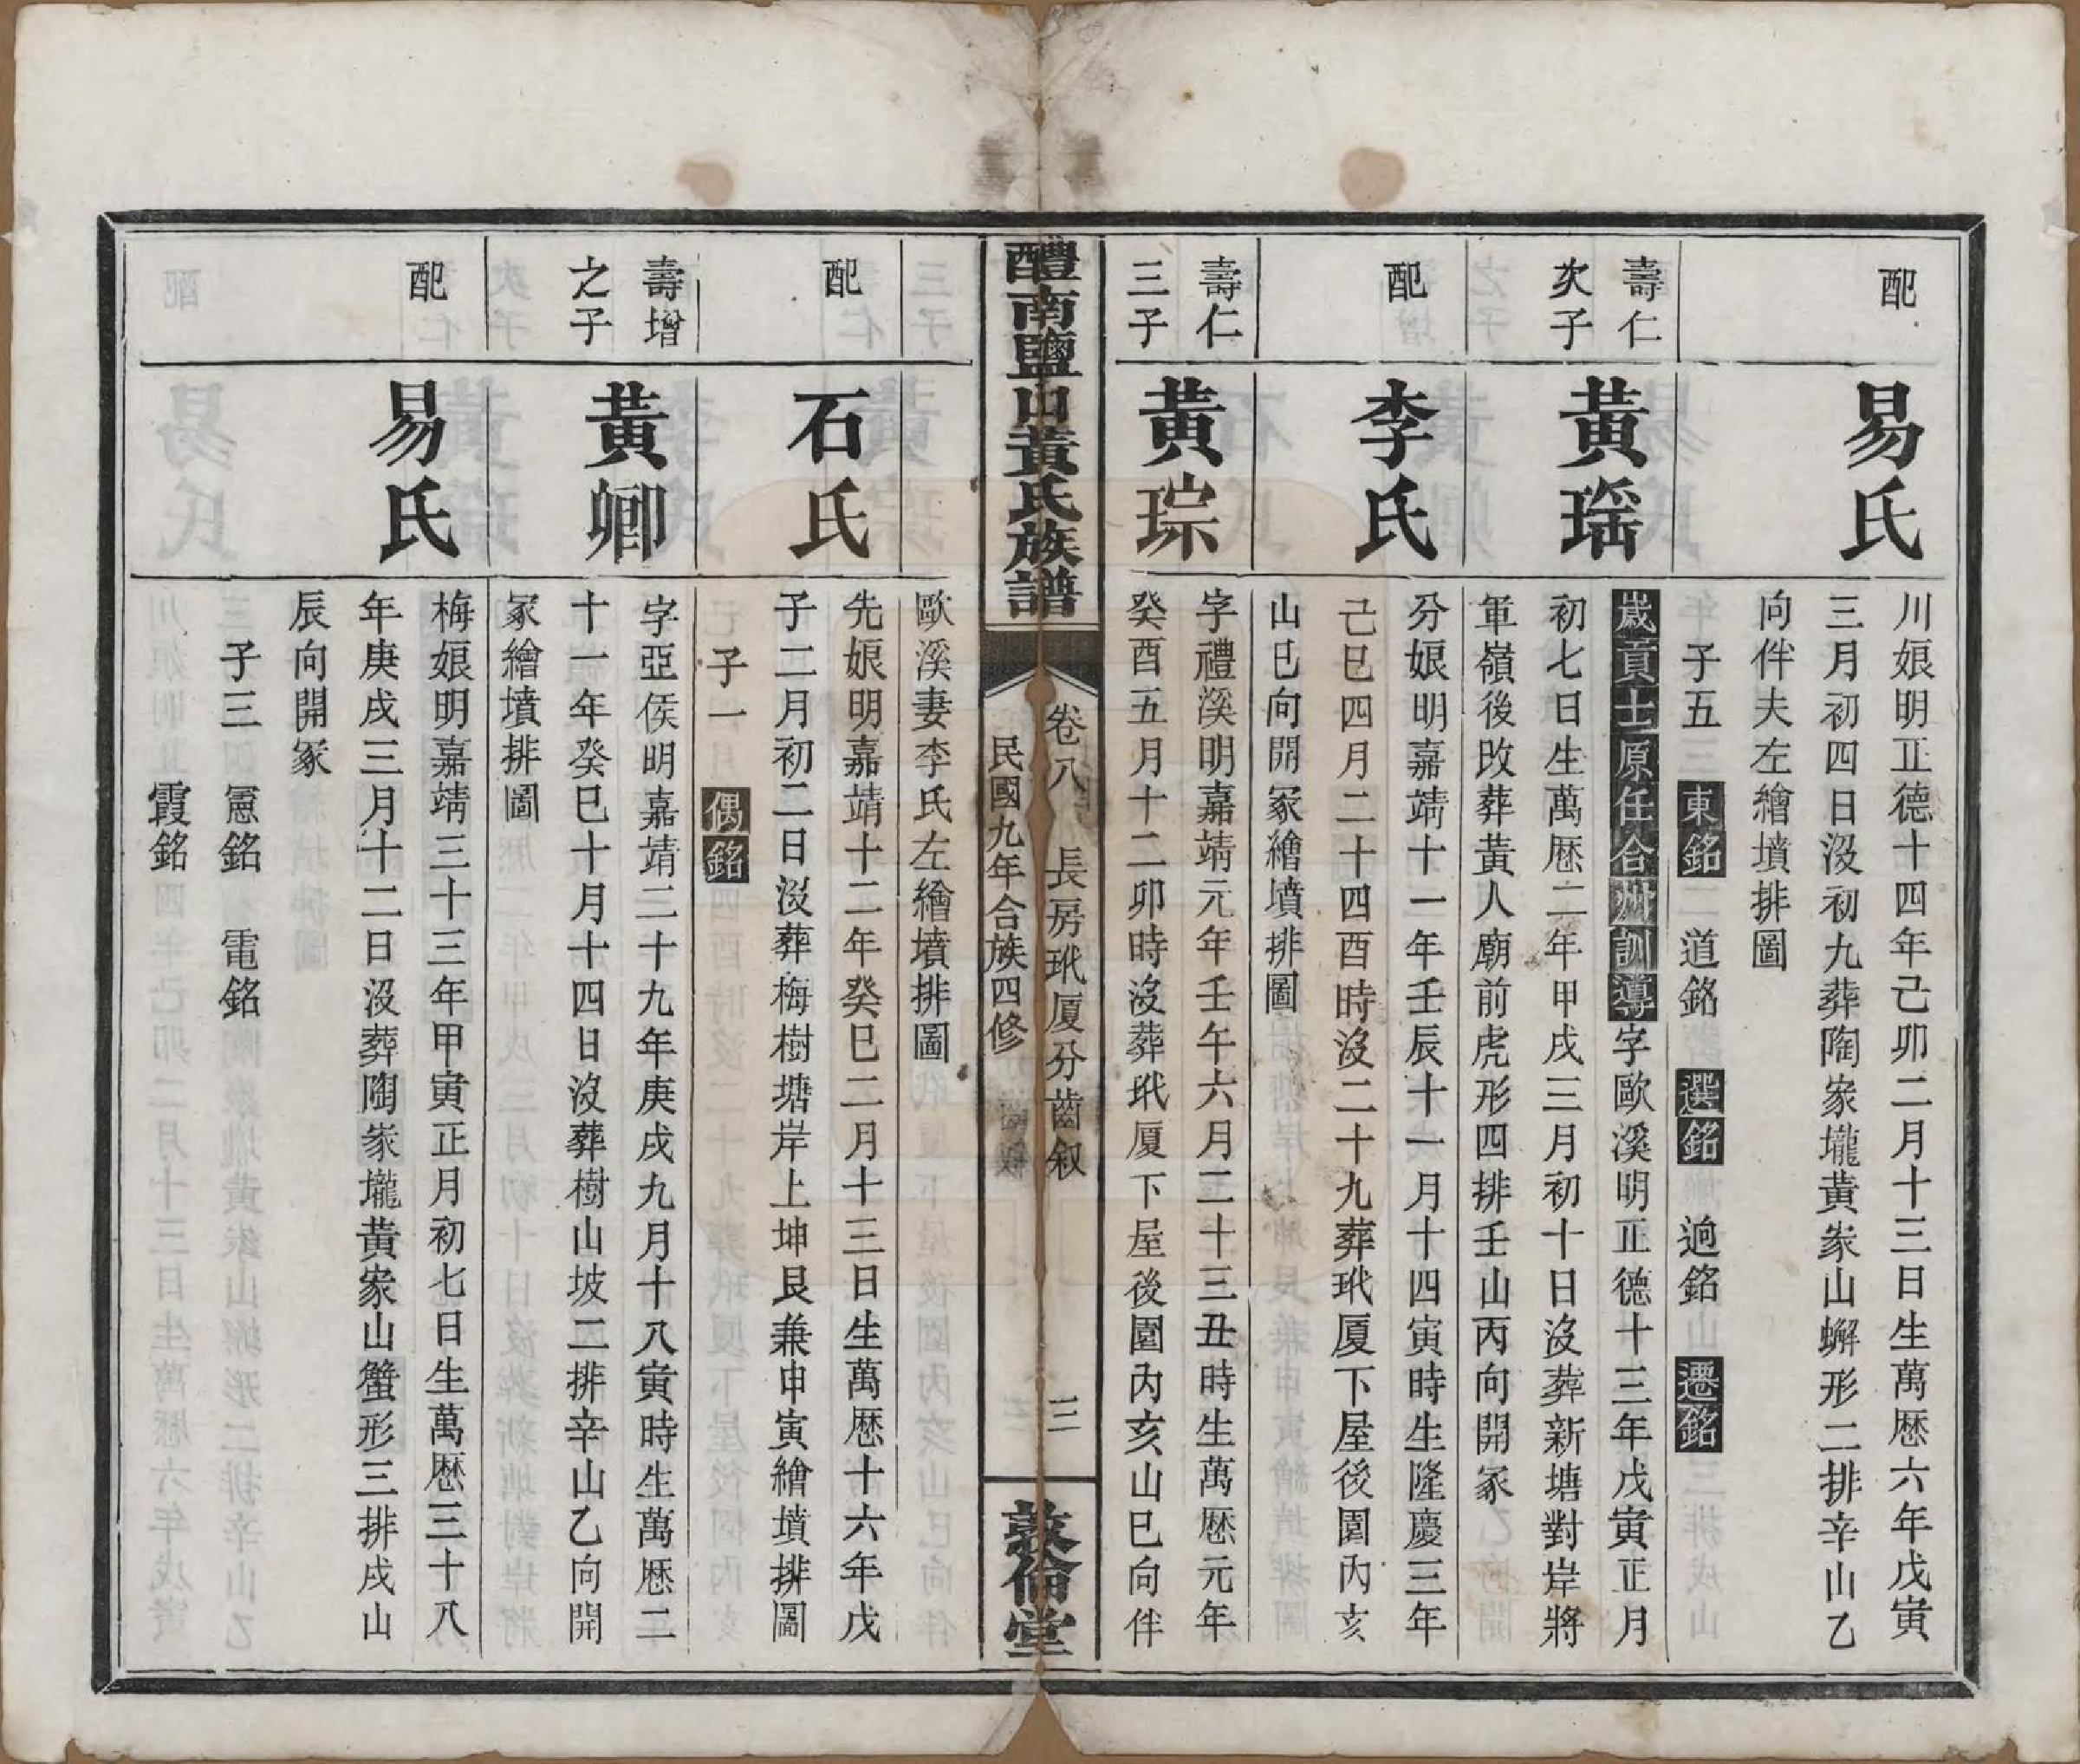 配
易氏
川娘明正德十四年己卯二月十三日生萬厯六年戊寅
三月初四日沒初九葬陶家壠黃家山蠏形二排辛山乙
向伴夫左繪墳排圖
子五 東銘 道銘 選銘 逈銘 遷銘
壽仁
次子
黃瑶
歲貢士原任合州訓導字歐溪明正德十三年戊寅正月
初七日生萬厯二年甲戌三月初十日沒葬新塘對岸將
軍嶺後改葬黃人廟前虎形四排壬山丙向開冢
配
李氏
分娘明嘉靖十一年壬辰十一月十四寅時生隆慶三年
己巳四月二十四酉時沒二十九葬玳厦下屋後園內亥
山巳向開冢繪墳排圖
壽仁
三子
黃琮
字禮溪明嘉靖元年壬午六月二十三丑時生萬厯元年
癸酉五月十二卯時沒葬玳厦下屋後園內亥山巳向伴
醴南鹽山黃氏族譜
卷八 長房玳厦分齒叙 三
民國九年合族四修
敦倫堂
歐溪妻李氏左繪墳排圖
配
石氏
先娘明嘉靖十二年癸巳二月十三日生萬厯十六年戊
子二月初二日沒葬梅樹塘岸上坤艮兼申寅繪墳排圖
子一 偶銘
壽增
之子
黃卿
字亞侯明嘉靖二十九年庚戌九月十八寅時生萬厯二
十一年癸巳十月十四日沒葬樹山坡二排辛山乙向開
冢繪墳排圖
配
易氏
梅娘明嘉靖三十三年甲寅正月初七日生萬厯三十八
年庚戌三月十二日沒葬陶家壠黃家山蟹形三排戌山
辰向開冢
子三 寭銘 電銘
霞銘